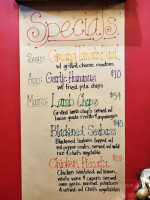 Specials
Soup: Creamy Tomato Basil
w/ grilled cheese croutons
Apps: Garlic Hummus $10
w/ fried pita chips
Mains: Lamb Chops $34
Grilled lamb chops served w/
house potato
Blackened Seabass
Blackened Seabass topped w/
red pepper served w/ wild
rice & chef's vegetables
Chicken Piccata
Chicken sauteed w/ lemon,
white wine & capers served
over garlic mashed potatoes
& served w/ Chef's vegetables